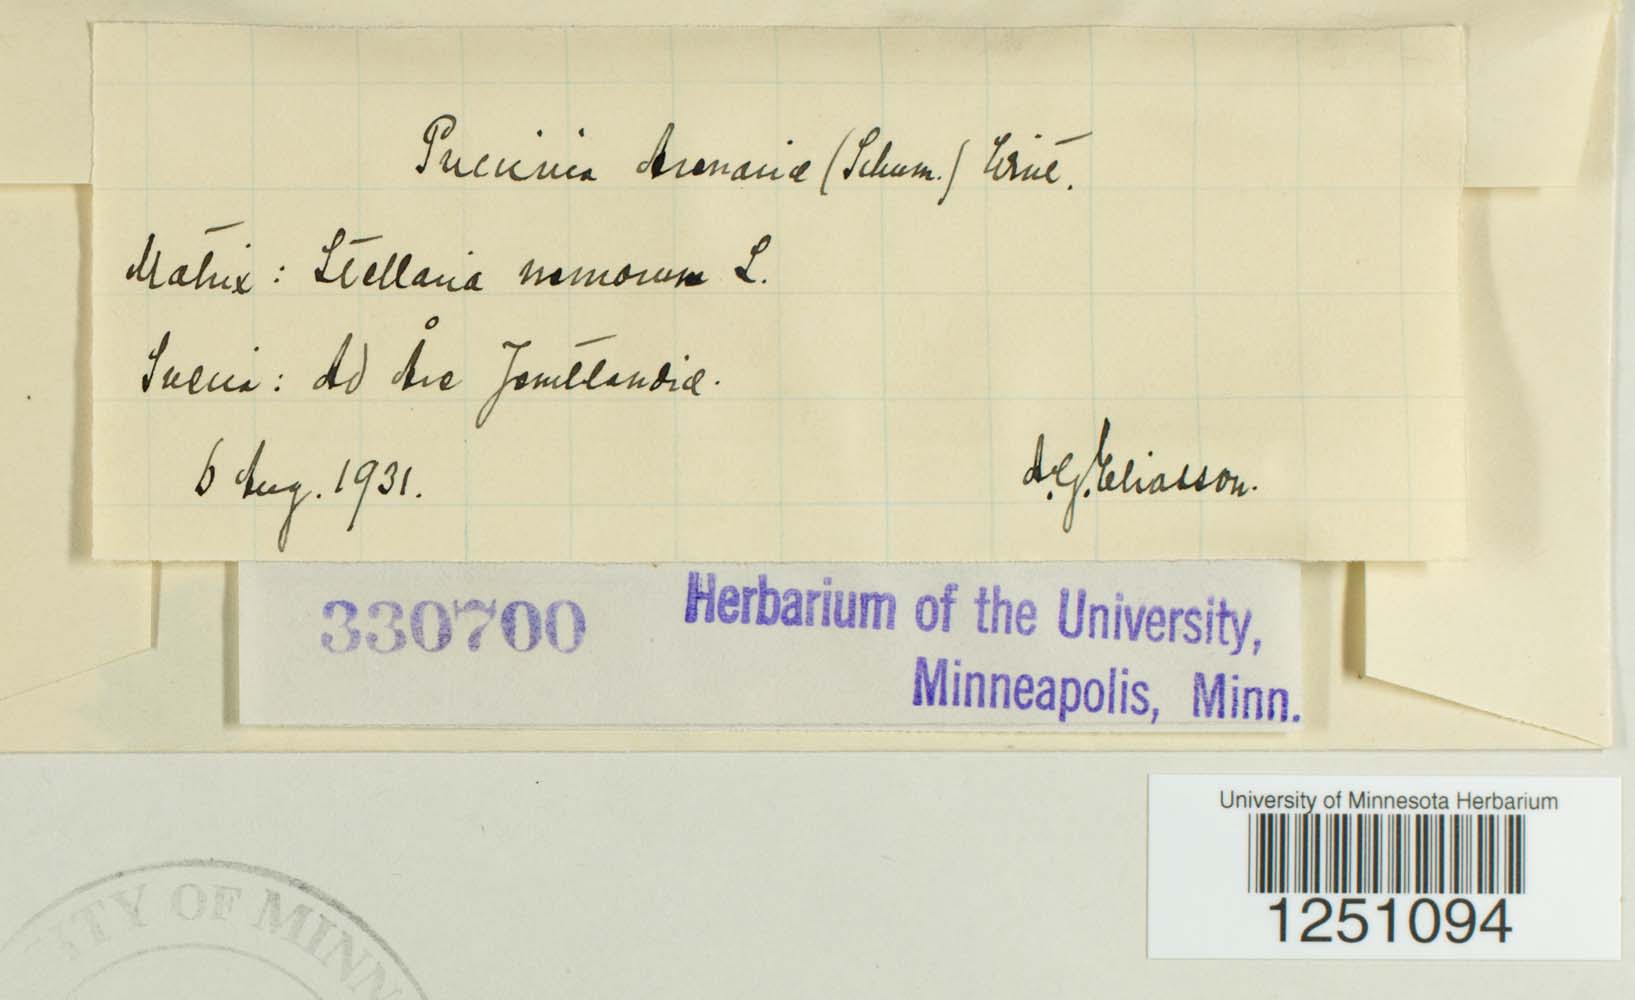 Puccinia Arenariæ (Schum.) Wint.
Matrix: Stellaria nemorum L.
Suecia: Ad Åre Jemtlandiæ.
6 Aug. 1931.
A.G. Eliasson.
330700
Herbarium of the University,
Minneapolis, Minn.
University of Minnesota Herbarium
1251094
OF MINN